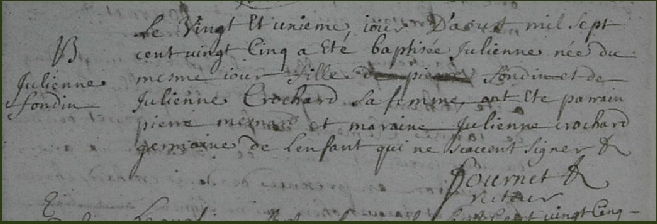 Le vingt et unieme jour D'aoust mil sept
B
cent vingt Cinq a eté baptisée Julienne née du
Julienne
meme jour fille de pierre fondin et de
fondin
Julienne Crochard sa femme, ont ete parrain
pierre menard et maraine Julienne crochard
germaine de Lenfant qui ne scavent signer &
fournet &
recteur
vingt Cinq